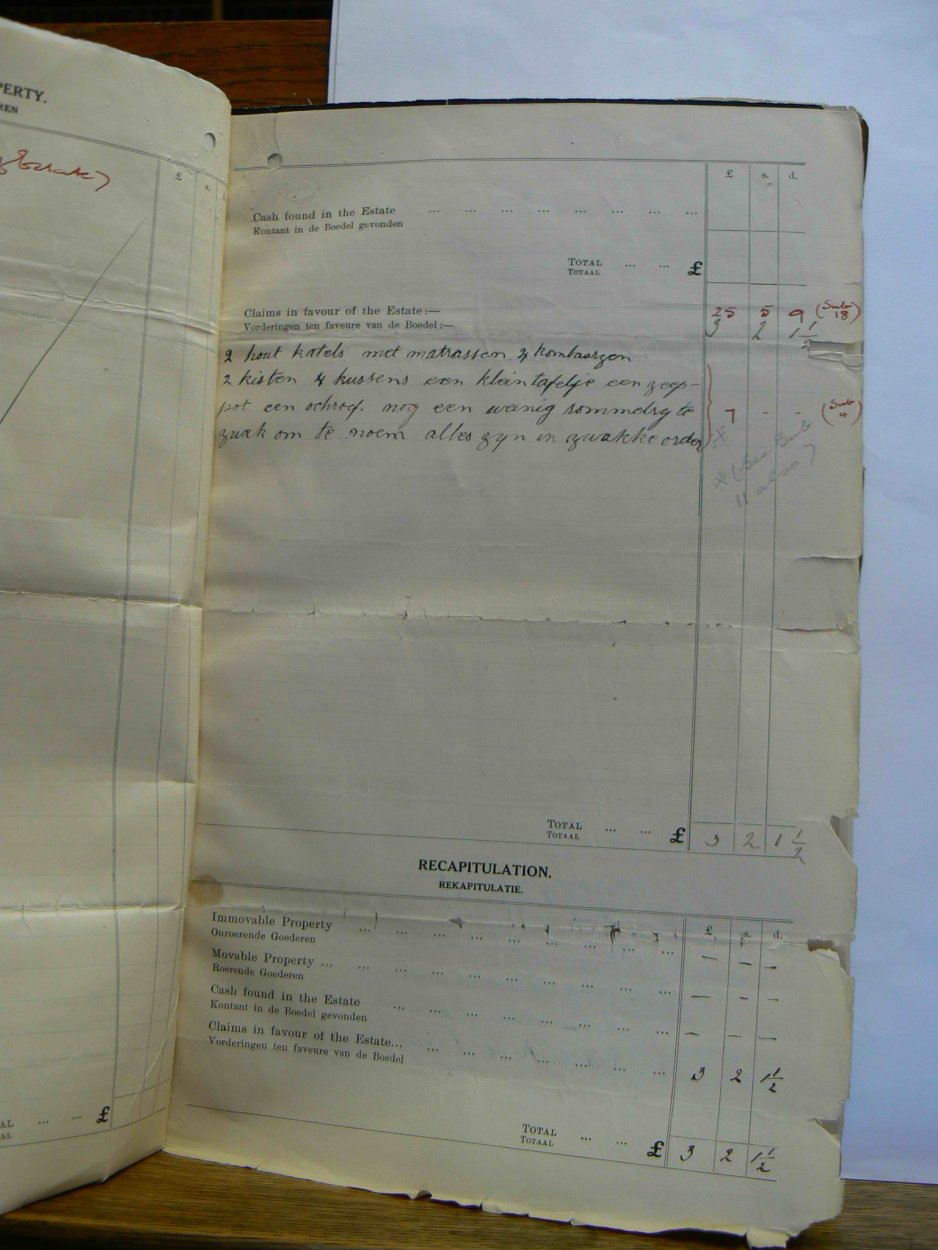 PERTY.
REN
Estate)
£ s.
£ s. d.
Cash found in the Estate ... ... ... ... ... ... ... ...
Kontant in de Boedel gevonden
TOTAL ... ... £
TOTAAL
Claims in favour of the Estate:— 25 5 9 (Sub 18)
Vorderingen ten faveure van de Boedel:— 3 2 1½
2 hout katels met matrassen 4 kombaarzen
2 kisten 4 kussens een klein tafeltje een zeep-
pot een nog een wenig rommelry te 7 - - (Sub 4)
zwak om te noem alles zyn in zwakke order
* (See Sub
11 also)
TOTAL ... ... £ 3 2 1½
TOTAAL
RECAPITULATION.
REKAPITULATIE.
£ s. d.
Immovable Property ... ... ... ... ... ... ... ... ... — — —
Onroerende Goederen
Movable Property ... ... ... ... ... ... ... ... ... — — —
Roerende Goederen
Cash found in the Estate ... ... ... ... ... ... ... ... — — —
Kontant in de Boedel gevonden
Claims in favour of the Estate... ... ... ... ... ... ... ... 3 2 1½
Vorderingen ten faveure van de Boedel
TOTAL ... ... £ 3 2 1½
TOTAAL
AL ... ... £
AL